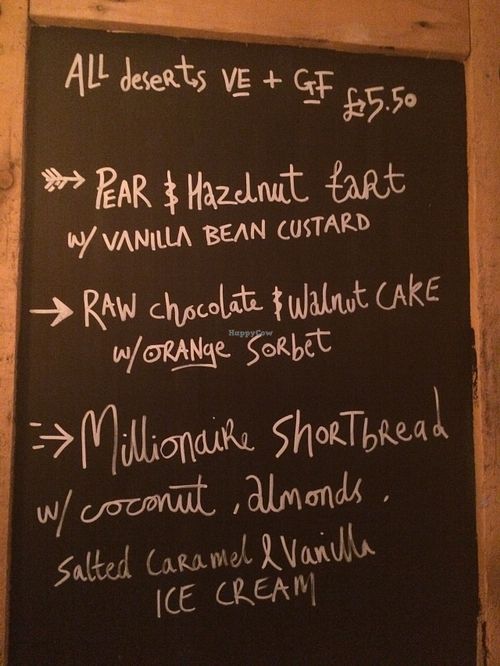 ALL deserts VE + GF £5.50
PEAR & Hazelnut tart
w/ VANILLA BEAN CUSTARD
RAW chocolate & Walnut CAKE
w/ ORANGE SORBET
Millionaire Shortbread
w/ coconut, almonds,
Salted Caramel & Vanilla
ICE CREAM
HappyCow